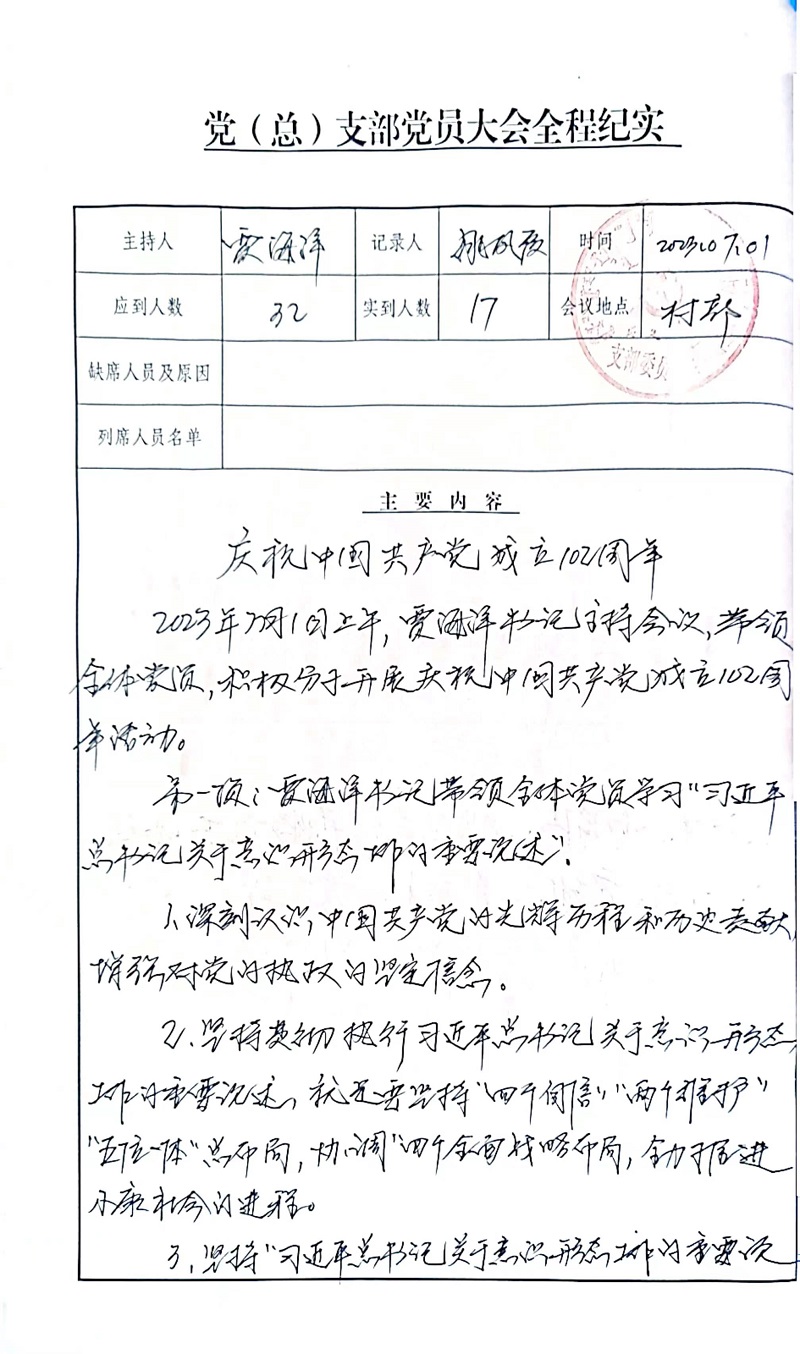 党（总）支部党员大会全程纪实
主持人 贾海洋 记录人 时间 2023.07.01
应到人数 32 实到人数 17 会议地点 村部
缺席人员及原因
列席人员名单
支部委员
主要内容
庆祝中国共产党成立102周年
2023年7月1日上午，贾海洋书记主持会议，带领
全体党员，积极分子开展庆祝中国共产党成立102周
年活动。
第一项：贾海洋书记带领全体党员学习“习近平
总书记关于意识形态工作的重要论述”。
1、深刻认识中国共产党的光辉历程和历史贡献，
增强对党的执政的坚定信念。
2、坚持贯彻执行习近平总书记关于意识形态
工作的重要论述，就是要坚持“四个自信”“两个维护”
“五位一体”总布局，协调“四个全面战略布局，全力推进
小康社会的进程。
3、坚持“习近平总书记关于意识形态工作的重要论